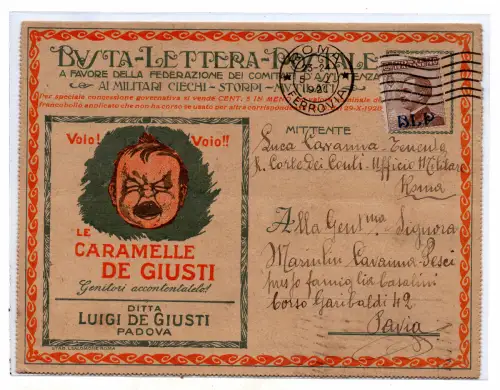 BVSTA-LETTERA-POSTALE
A FAVORE DELLA FEDERAZIONE DEI COMITATI D'ASSISTENZA
AI MILITARI CIECHI - STORPI -
Per speciale concessione governativa si vende CENT. 5 IN MENO
francobollo applicato che non ha corso se usato per altra 29-X-1920
ROMA
1921
FERROVIA
B.L.P
Voio! Voio!!
LE
CARAMELLE
DE GIUSTI
Genitori accontentatelo!
DITTA
LUIGI DE GIUSTI
PADOVA
MITTENTE
Luca Cavanna-Tenente
R. Corte dei Conti-Ufficio Militare
Roma
Alla Gent.ma Signora
Cavanna-Pesci
presso famiglia Casalini
Corso Garibaldi 42
Pavia